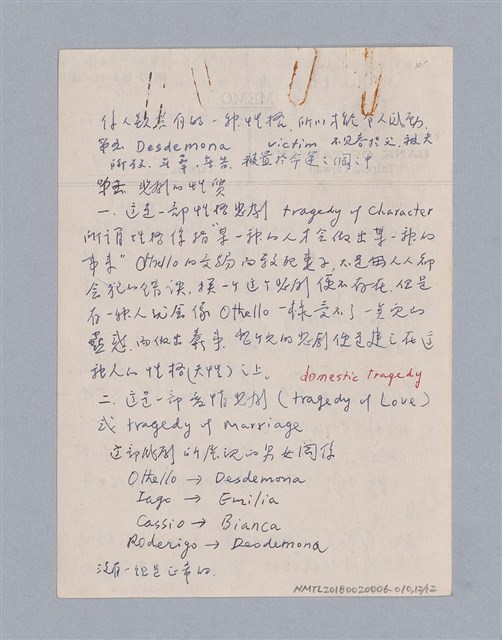 什人類共有的一種性格，所以才能令人感動.
第五 Desdemona victim 不見容於父，被夫
被置於命運之網之中
第五 悲劇的性質
一. 这是一部性格悲劇 tragedy of Character
所謂性格係指"某一種的人才会做出某一種的
事來" Othello的 妻子，不是由人人都
会犯的錯誤，換一个 这个悲劇便不存在，但是
有一种人就会像 Othello 一樣受不了一定的
蠱惑，而做出 來，整个的悲劇便是建立在这
種人的性格(天性)之上。 domestic tragedy
二. 这是一部爱情悲劇 (tragedy of Love)
或 tragedy of marriage
这部戲劇所展現的男女関係
Othello → Desdemona
Iago → Emilia
Cassio → Bianca
Roderigo → Desdemona
沒有一組是正常的.
NMTL20180020006-010,12/12